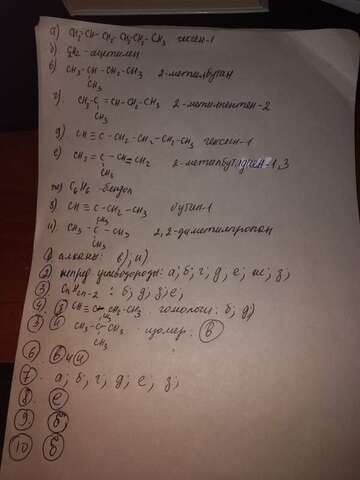 а) CH₂=CH-CH₂-CH₂-CH₂-CH₃ гексен-1
б) C₂H₂ - ацетилен
в) CH₃-CH-CH₂-CH₃ 2-метилбутан
CH₃
г) CH₃-C=CH-CH₂-CH₃ 2-метилпентен-2
CH₃
д) CH≡C-CH₂-CH₂-CH₂-CH₃ гексен-1
е) CH₂=C-CH=CH₂ 2-метилбутадиен-1,3
CH₃
ж) C₆H₆ - бензол
з) CH≡C-CH₂-CH₃ бутен-1
CH₃
и) CH₃-C-CH₃ 2,2-диметилпропан
CH₃
1 алканы: в); и)
2 непред. углеводороды: а; б; г; д; е; ж; з;
3 CnH2n-2: б; д; з; е;
4. з CH≡C-CH₂-CH₃. гомологи: б; д)
CH₃
5 и CH₃-C-CH₃ изомер. в
CH₃
6. в и и
7. а; б; г; д; е; з;
8. е
9 б
10 б